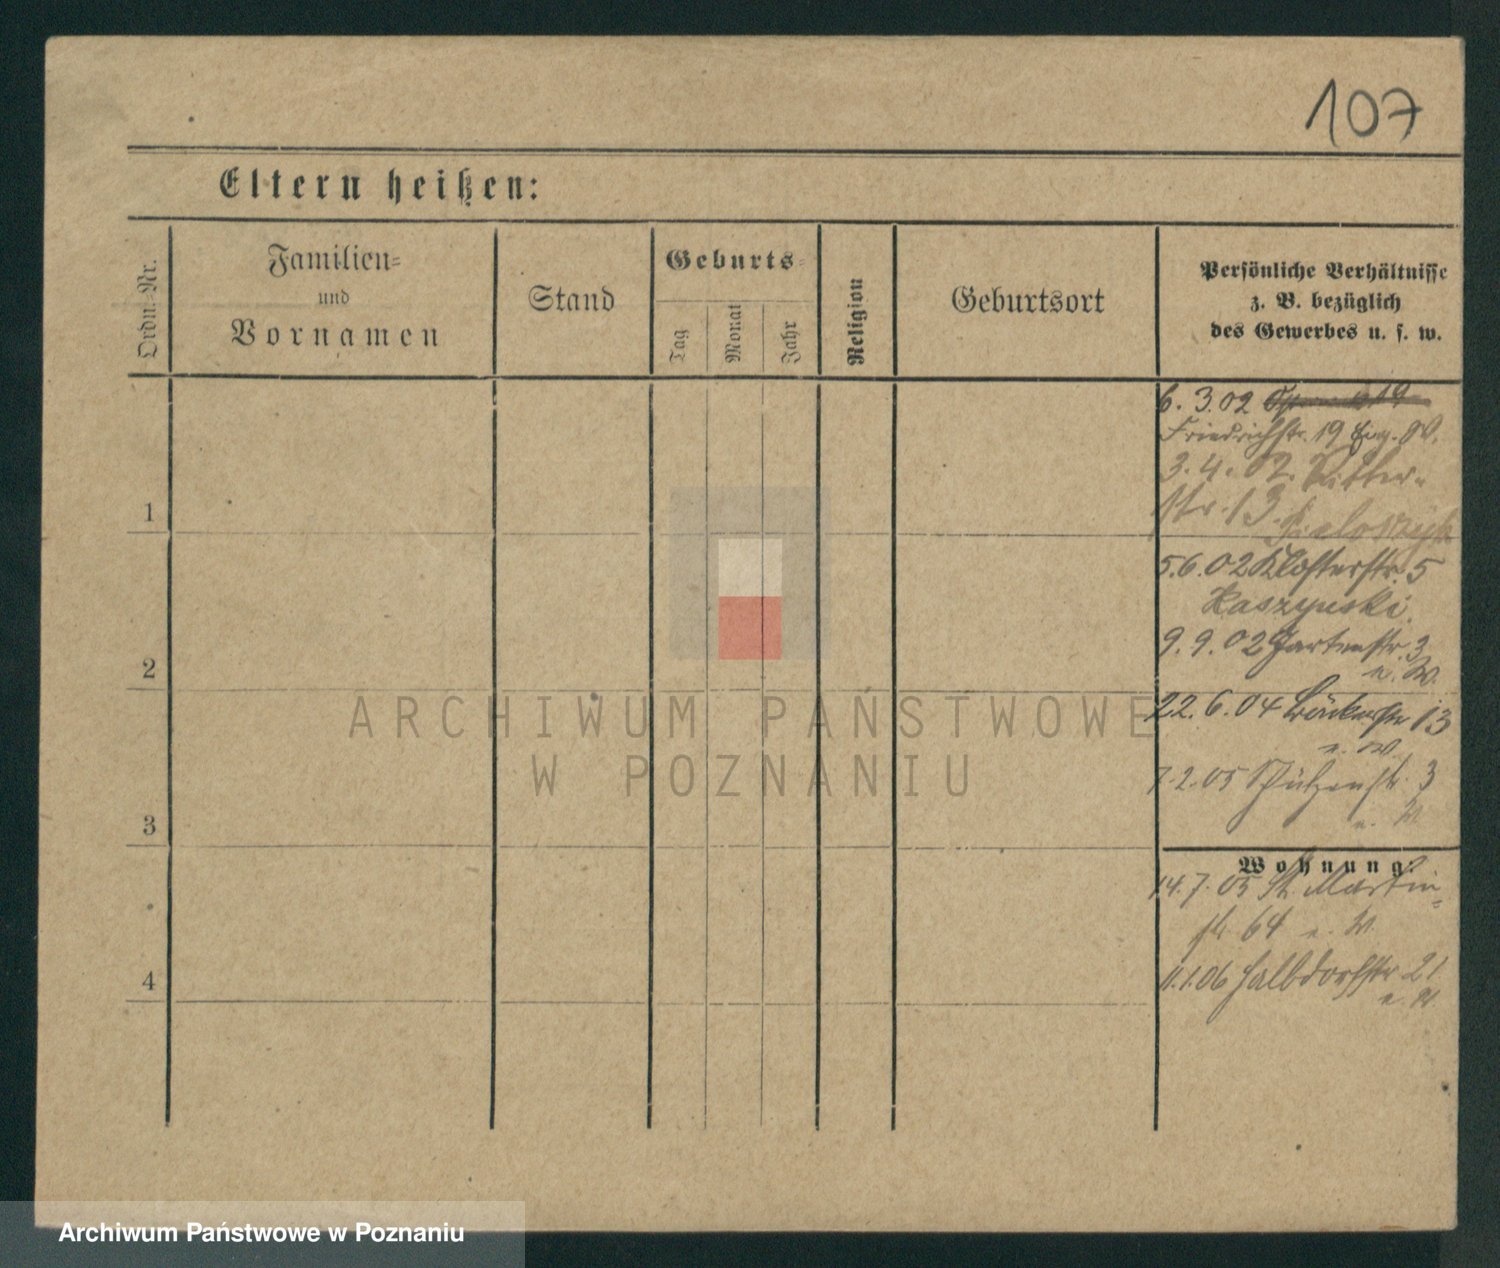 107
Eltern heißen:
Ordn.-Nr.
Familien-
und
Vornamen
Stand
Geburts-
Tag
Monat
Jahr
Religion
Geburtsort
Persönliche Verhältnisse
z. B. bezüglich
des Gewerbes u. s. w.
6. 3. 02
Friedrichstr. 19
3. 4. 02. Ritter-
str. 13.
1
5. 6. 02 Klosterstr. 5
Kaszynski
9. 9. 02 Gartenstr. 3
n. W.
2
22. 6. 04 Bäckerstr 13
n. W.
7. 2. 05 Schützenstr. 3
n. W.
3
Wohnung:
14. 7. 05 St. Martin-
str. 64 n. W.
11. 1. 06 Halbdorfstr 21
n. W.
4
ARCHIWUM PAŃSTWOWE
W POZNANIU
Archiwum Państwowe w Poznaniu